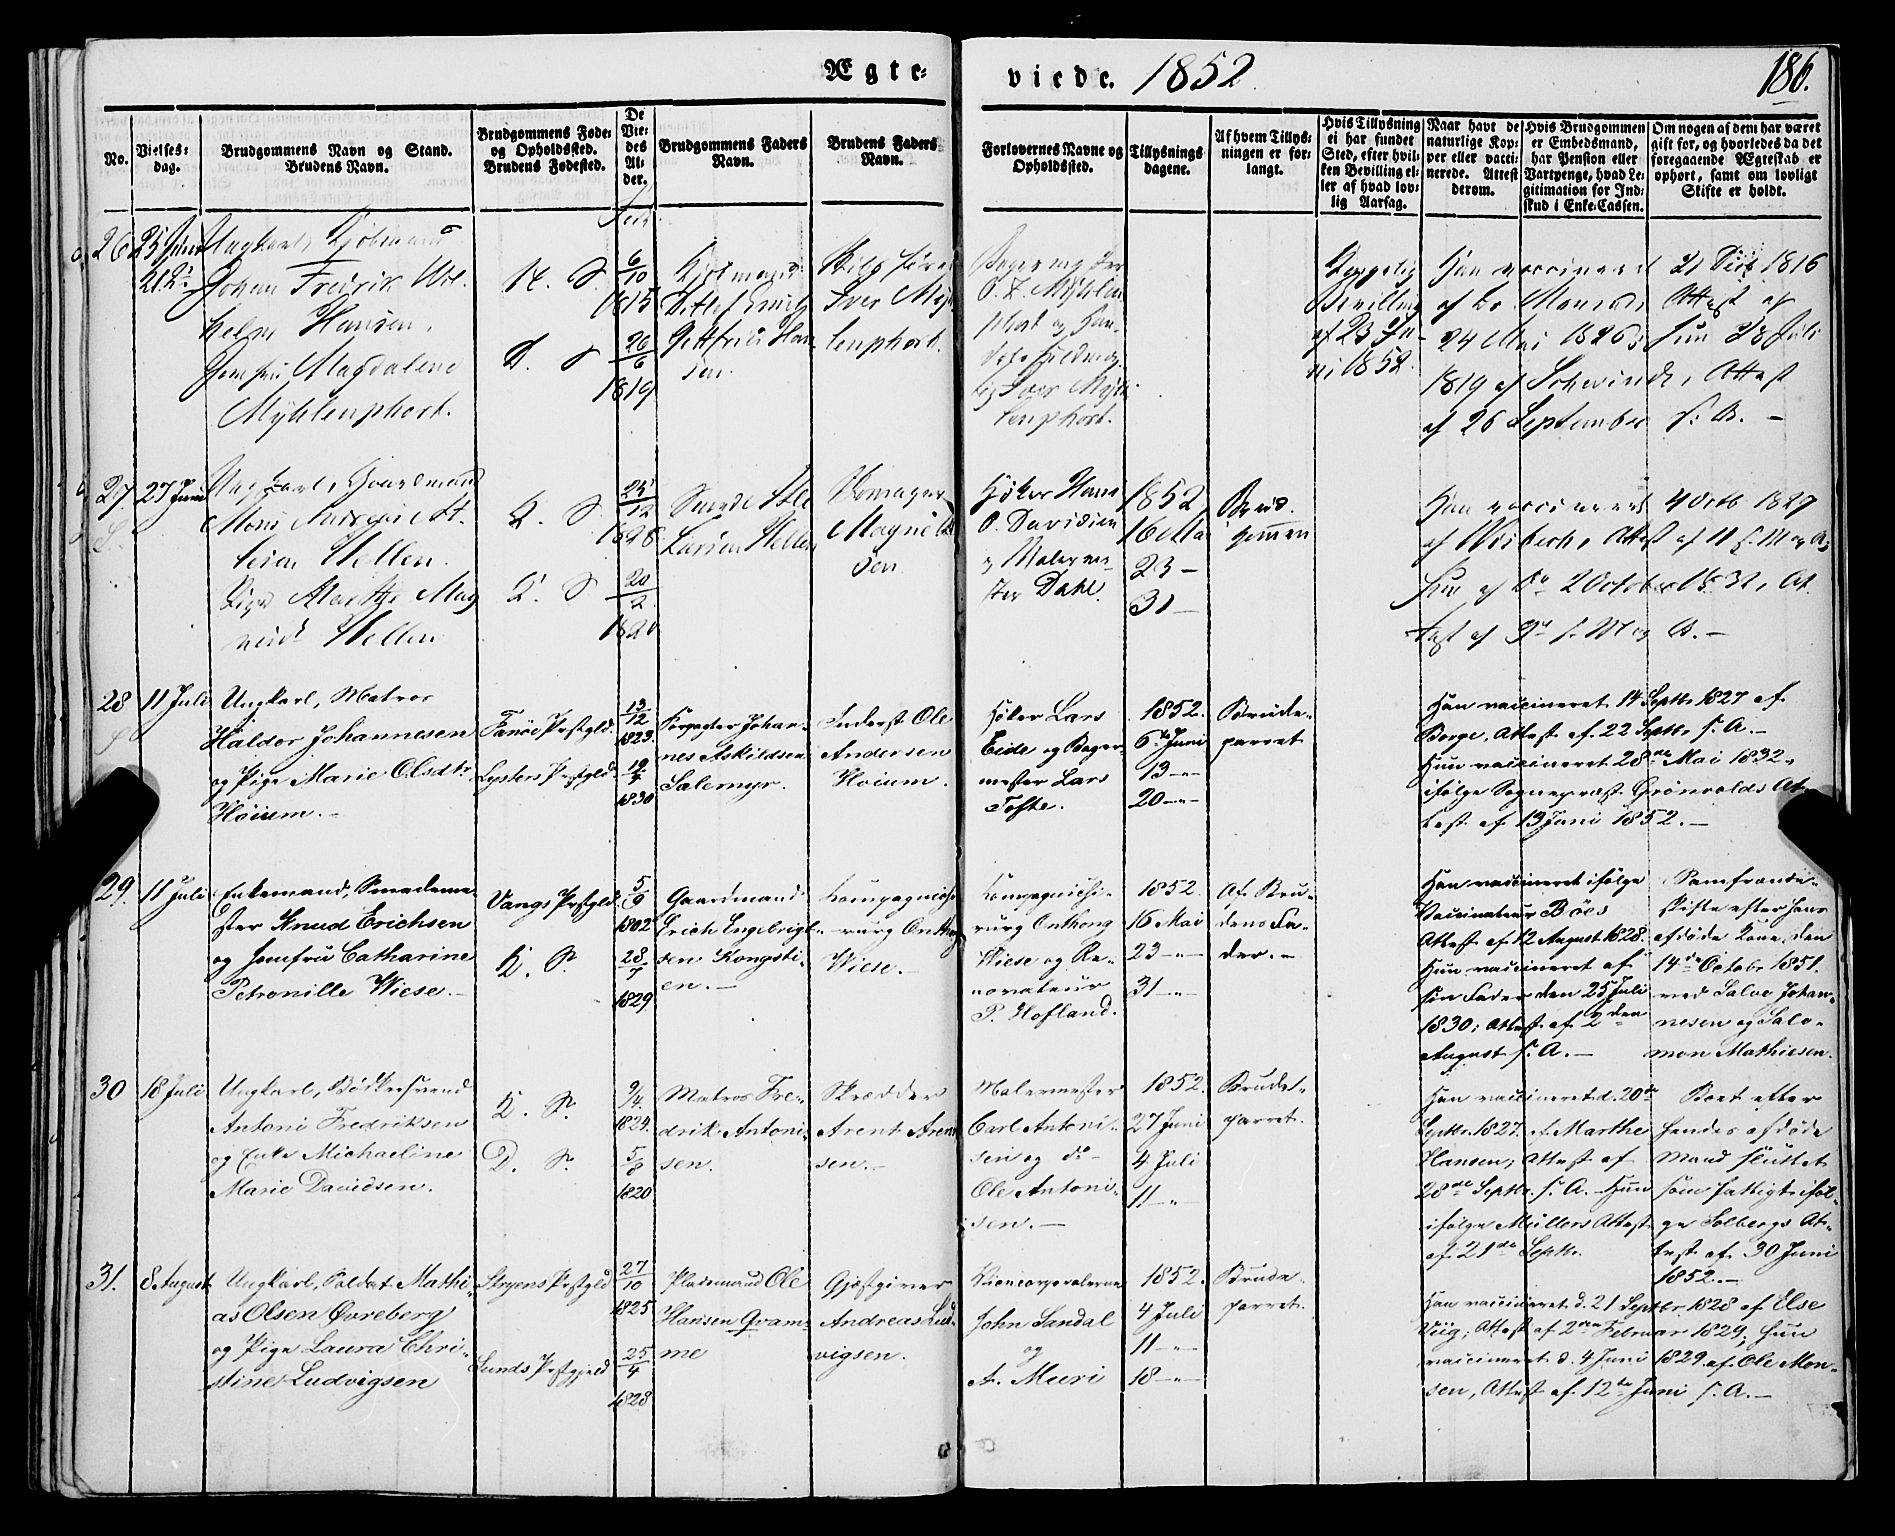 Ægte-
viede. 1852
186.
No.
Vielses-
dag.
Brudgommens Navn og Stand.
Brudens Navn.
Brudgommens Føde-
og Opholdssted.
Brudens Fødested.
De
Vie-
des
Al-
der.
Brudgommens Faders
Navn.
Brudens Faders
Navn.
Forlovernes Navne og
Opholdssted.
Tillysnings
dagene.
Af hvem Tillys-
ningen er for-
langt.
Hvis Tillysning
ei har fundet
Sted, efter hvil-
ken Bevilling el-
ler af hvad lov-
lig Aarsag.
Naar havt de
naturlige Kop-
per eller vacci-
nerede. Attest
derom.
Hvis Brudgommen
er Embedsmand,
har Pension eller
Vartpenge, hvad Le-
gitimation for Ind-
skud i Enke-Cassen.
Om nogen af dem har været
gift før, og hvorledes da det
foregaaende Ægteskab er
ophørt, samt om lovligt
Skifte er holdt.
26
25 Juni
Ungkarl, Kjøbmand
Johan Fredrik Wil-
helm Hansen.
Jomfru Magdalene
Mÿhlenphort.
N. S
D. S
6/10
1815
26/6
1819
Kjøbmand
Ditlef
Gottfried Han-
sen.
Iver Mÿh
lenphort.
O. Z. Mÿhlen
phort og Han-
Iver Mÿh
lenphort.
Kongelig
Bevilling
af 23 Ju-
ni 1852.
Han vaccineret 21 1816
af Attest af
24 Mai 1826; hun 28 Juli
1819 af Schwindt, Attest
af 26 September s. A. -
27
27 Juni
Ungkarl, Gaardmand
Mons Andreas At-
lesen Hellen.
Pige Marthe Mag
nusd Hellen
D. S
D. S
25/12
1828
20/2
1820
Larsen Hellen
Magne
sen
Høker Hans
O. Davidsen
og Malerme-
ster Dahl.
1852
16 Mai
23 -
31 -
Brud-
gommen
Han vaccineret 4 Octb 1827
af Wisbech, Attest af 11 s. M og A;
Hun af Do 2 October 1832, At
test af Do s. M og A. -
28
11 Juli
Ungkarl, Matros
Haldor Johannesen
og Pige Marie Olsdtr
Høium. -
Fanøe Præstgld.
Lysters Præstgld.
13/12
1823.
19/7
1830
Forpagter Johan-
nes Askildsen
Salemyr.
Inderst Ole
Andersen
Høium.
Høker Lars
Eide og Bager-
mester Lars
Tofte.
1852.
6te Juni
13 - "-
20 - "-
Brude-
parret
Han vaccineret 14 Septbr 1827 af
Borge, Attest af 22 Septbr s. A. -
Hun vaccineret 28de Mai 1832,
ifølge Sognepræst Grønvolds At-
test af 13 Juni 1852. -
29.
11 Juli
Enkemand, Smedeme-
ster Knud Erichsen
og Jomfru Catharine
Petronille Wiese. -
Vangs Præstgld.
D. S.
5/9
1802
28/7
1829
Gaardmand
Erich Engebrigt-
sen Kongsti-
en. -
Kompagniechi-
rurg Anthon
Wiese. -
Kompagniechi-
rurg Anthon
Wiese og Re-
novateur
P. Hofland.
1852.
16 Mai
23 - "-
31 - "-
Af Bru-
dens Fa-
der. -
Han vaccineret ifølge
Vaccinateur Bøes
Attest af 12 August 1828.
Hun vaccineret af
sin Fader den 25 Juli
1830; Attest af 2den
August s. A. -
Samfrænde-
skifte efter hans
afdøde Kone, den
14de Octobr 1851.
med Salve Johan-
nesen og Salo-
mon Mathiesen.
30
18 Juli
Ungkarl, Bødkersvend
Antoni Fredriksen
og Enke Michaeline
Marie Davidsen.
D. S.
D. S.
9/4.
1824.
5/8
1820
Matros Fre-
drik Antoni-
sen.
Skrædder
Arent Arent
sen. -
Malermester
Carl Antoni-
sen og do
Ole Antoni-
sen. -
1852.
27 Juni
4 Juli
11 - "-
Brude-
parret.
Han vaccineret d. 20de
Septbr 1827. af Marthe
Hansen, Attest af
28de Septbr. s. A. Hun
ifølge Müllers Attest
af 21de Septbr.
Boet efter
hendes afdøde
Mand sluttet
som fattigt iføl-
ge Solbergs At-
test af 30 Juni
1852. -
31.
8 August
Ungkarl, Soldat Mathi-
as Olsen Øvreberg
og Pige Laura Chri-
stine Ludvigsen
Stryens Præstgld
Lunds Præstgjeld
27/10
1825
25/4
1828
Pladsmand Ole
Hansen Qvam-
me
Gjæstgiver
Andreas Lud-
vigsen.
Vicecorporalerne
John Sandal
og
A. Muri
1852.
4 Juli
11 - "-
18 - "-
Brude-
parret.
Han vaccineret d. 21 Septbr 1828 af Else
Viig; Attest af 2den Februar 1829; hun
vaccineret d. 4 Juni 1829 af Ole Mon-
sen, Attest af 12te Juni s. A. -